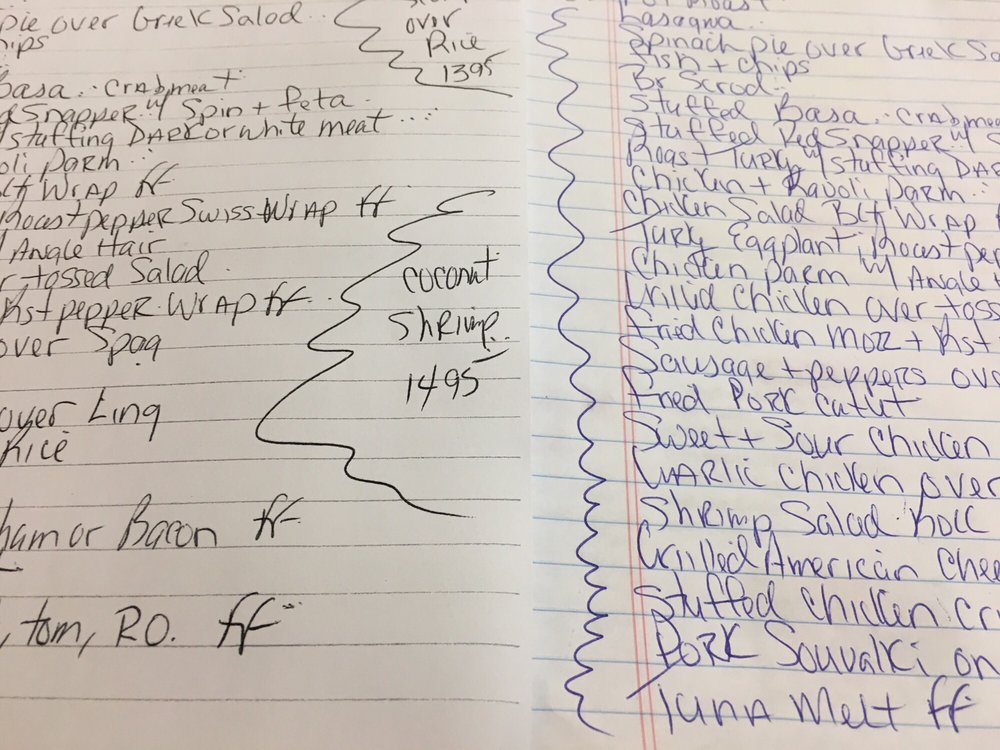 pie over Griek Salad..
hips
Basa.. Crabmeat
Snapper w/ Spin + feta.
/stuffing DARK or white meat...
oli parm...
Blt WrAp ff
Roast pepper Swiss WrAp ff
/ Angle Hair
r tossed Salad.
Rst pepper. WrAp ff..
over Spag
over Ling
Rice
ham or Bacon ff
, tom, RO. ff
over
Rice
1395
coconut
Shrimp..
1495
Lasagna..
Spinach pie over Griek Sa
Fish + chips
Br Scrod..
Stuffed Basa.. Crabmea
Stuffed Red Snapper w/ S
Roast Turky w/ stuffing DAR
Chicken + Ravoli parm..
Chicken Salad Blt WrAp f
Turky Eggplant, Roast pep
Chicken parm w/ Angle
Grilld Chicken over toss
Fried Chicken Mozz + Rst
Sausage + peppers ov
Fried Pork Cutut
Sweet + Sour Chicken
GARlic Chicken over
Shrimp Salad Roll
Grilled American Chee
Stuffed Chicken Cr
Pork Souvalki on
Tuna Melt ff